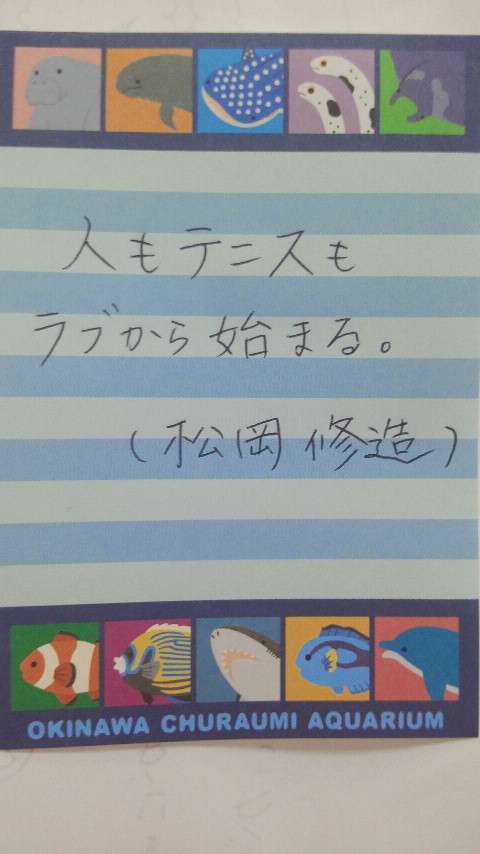 人もテニスも
ラブから始まる。
(松岡修造)
OKINAWA CHURAUMI AQUARIUM